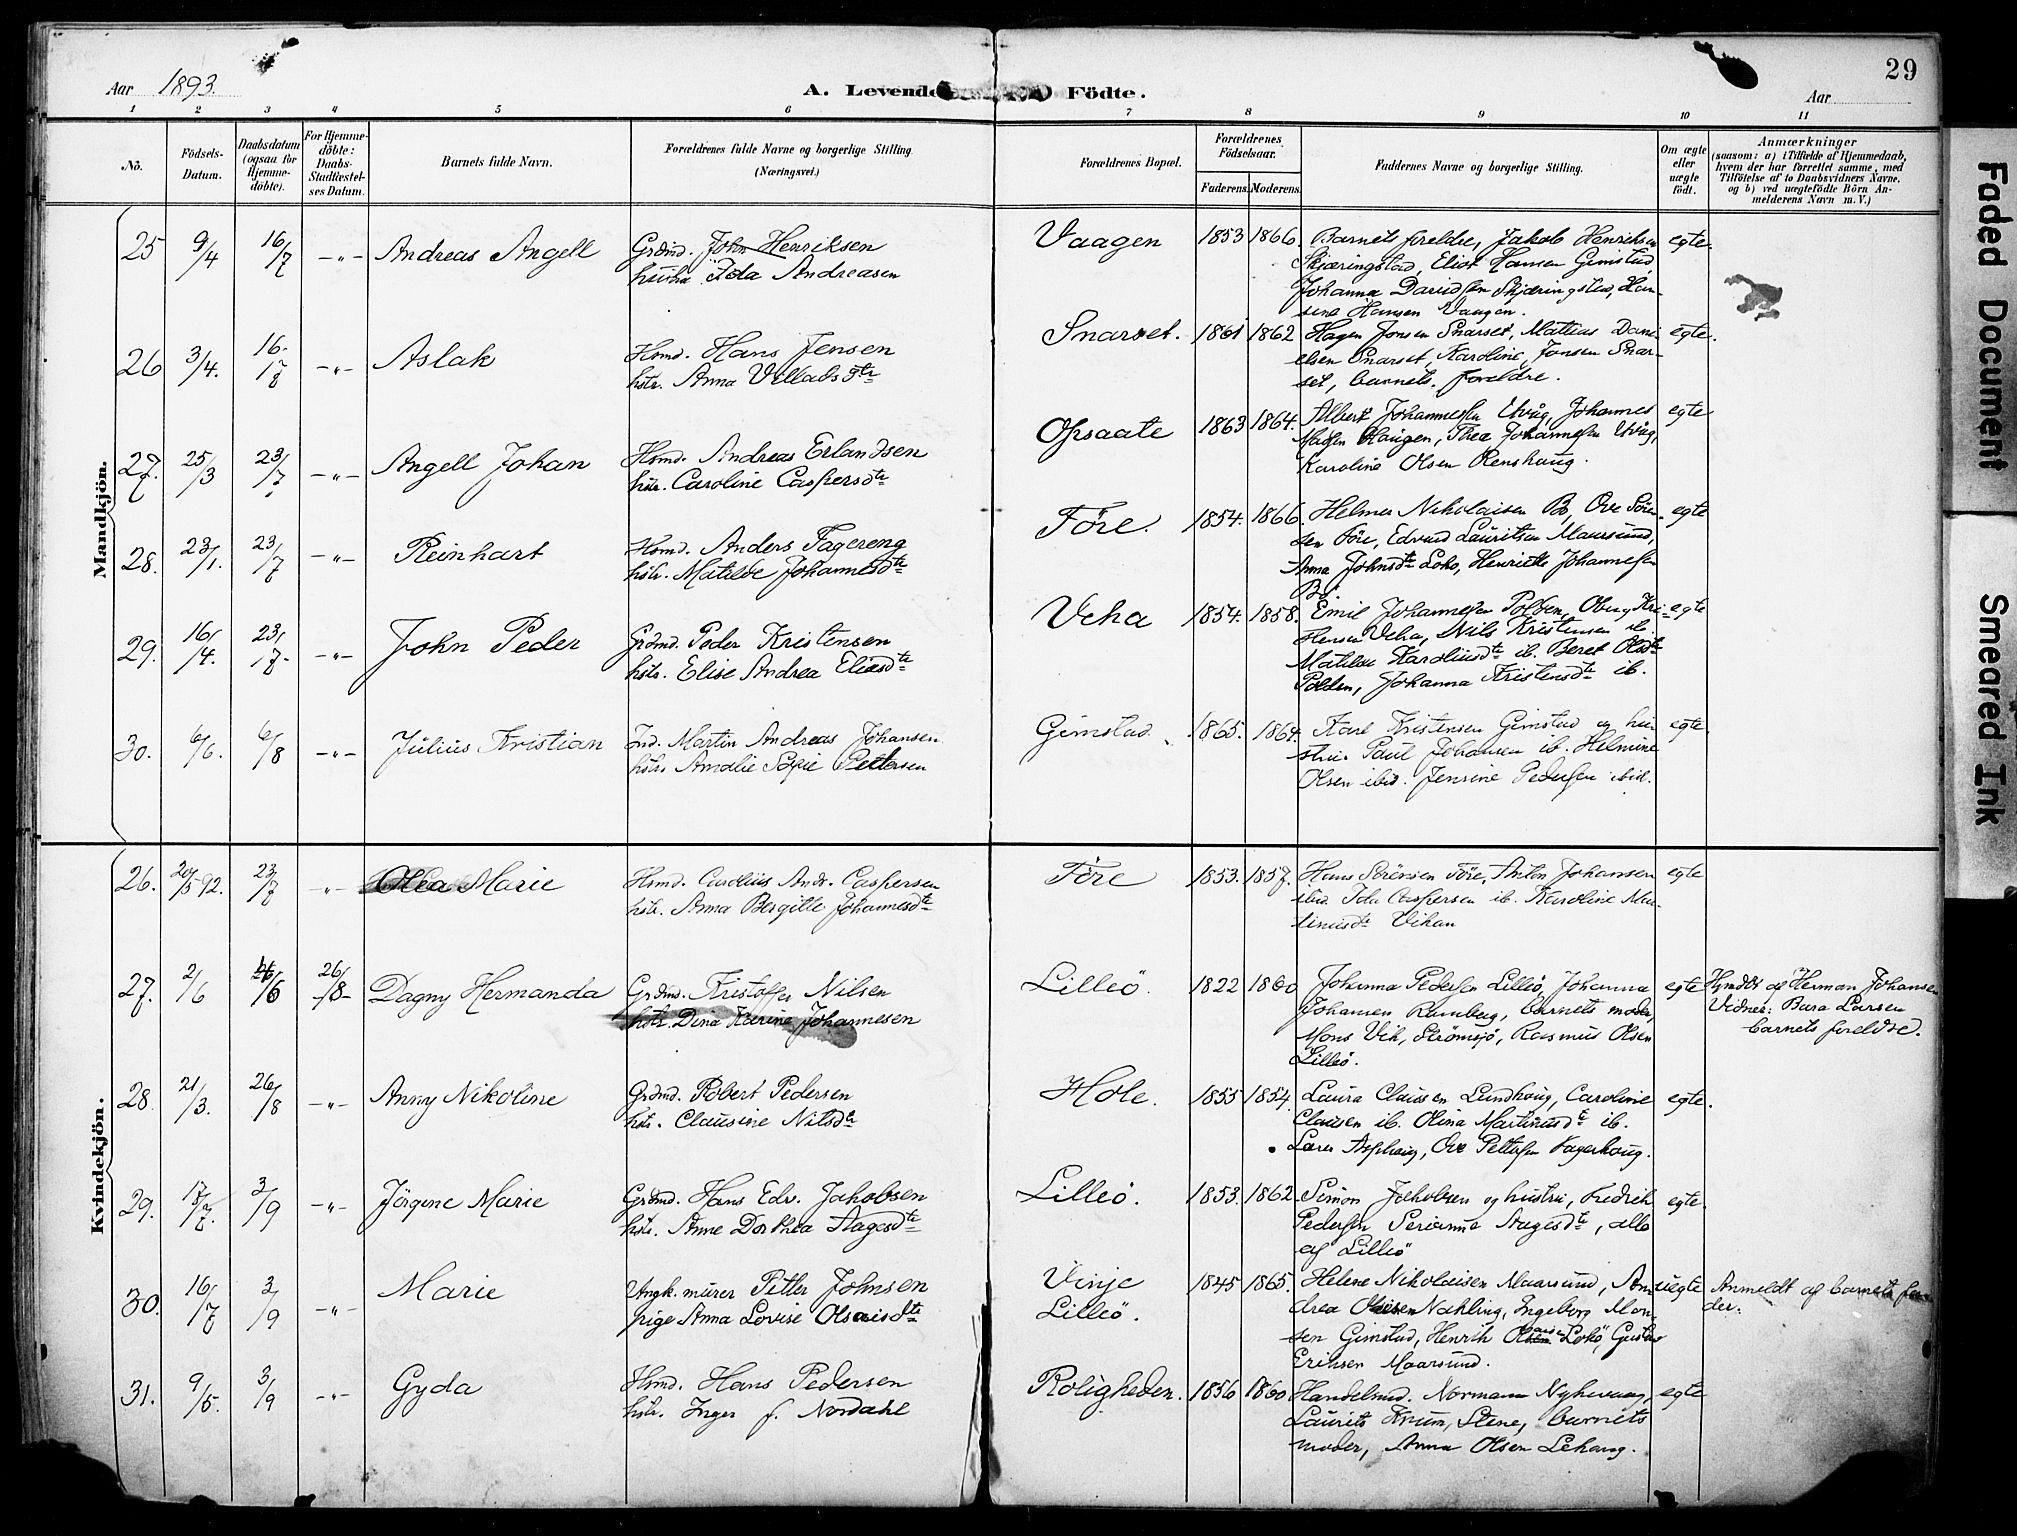 29
Aar 1893.
A. Levende Födte.
Aar
1 2 3 4 5 6 7 8 9 10 11
No.
Födsels-
Datum.
Daabsdatum
(ogsaa for
Hjemme-
döbte).
For Hjemme-
döbte:
Daabs-
Stadfæstel-
ses Datum.
Barnets fulde Navn.
Forældrenes fulde Navne og borgerlige Stilling.
(Næringsvei.)
Forældrenes Bopæl.
Forældrenes
Födselsaar.
Faderens. Moderens.
Faddernes Navne og borgerlige Stilling.
Om ægte
eller
uægte
født.
Anmærkninger
(saasom: a) i Tilfælde af Hjemmedaab,
hvem der har forrettet samme, med
Tilföielse af to Daabsvidners Navne,
og b) ved uægtefödte Börn An-
melderens Navn m. V.)
Mandkjön.
25 9/4 16/7 -"- Andreas Angell Grdmd. John Henriksen Vaagen 1853 1866. Barnets foreldre, Jakob Henriksen egte.
hustru Ida Andreasen Skjæringstad, Eliot Hansen Gimstad,
Johanna Davidsen Skjæringstad, Han-
sine Hansen Vaagen.
26 3/4. 16/7 -"- Aslak Hsmd. Hans Jensen Snarset. 1861 1862 Hagen Jonsen Snarset, Mathias Dani- egte.
hstr. Anna Velladsdtr elsen Snarset, Karoline Jonsen Snar-
set, barnets foreldre.
27. 25/3 23/7 -"- Angell Johan Hsmd. Andreas Erlandsen Opsaate 1863 1864. Albert Johannessen Utvåg, Johannes egte
hstr. Caroline Caspersdtr Madsen Haugen, Thea Johannesen Utvåg,
Karoline Olsen Renshaug.
28. 23/1. 23/7 -"- Reinhart Hsmd. Anders Fagereng Före. 1854. 1866. Helmer Nikolaisen Bö, Ove Sören- egte
hstr. Matilde Johannesdtr sen Före, Edvard Lauritsen Maarsund,
Anna Johnsdtr Loko, Henriette Johannesen
Bö.
29. 16/4. 23/7. -"- John Peder Grdmd. Peder Kristensen Veha 1854. 1858. Emil Johannesen Polden, Oluf Kri- egte
hstr. Elise Andrea Eliasdtr stensen Veha, Nils Kristensen ib.
Matilde Karoliusdtr ib. Beret Olsdtr
Polden, Johanna Kristensdtr ib.
30. 6/6. 6/8 -"- Julius Kristian Ind. Martin Andreas Johansen Gimstad. 1865. 1864. Karl Kristensen Gimstad og hu- egte.
hstr. Amalie Sofie Pettersen stru. Paul Johansen ib. Helmine
Olsen ibid. Jensine Pedersen ibid.
Kvindekjön.
26. 20/5 92. 23/7 -"- Olea Marie Hsmd. Carolius Andr. Caspersen Före 1853. 1857. Hans Sörensen Före, Anton Johansen egte
hstr. Anna Bergitte Johannesdtr ibid. Ida Caspersen ib. Karoline Mar-
tinusdtr Vikan
27. 2/6 /6 26/8- Dagny Hermanda Grdmd. Kristoffer Nilsen Lilleö. 1822 1860 Johanna Pedersen Lilleö, Johanna egte Hjmdbt af Herman Johansen
hstr. Dina Karine Johannesen Johansen Ramberg, barnets moder, Vidner: Bara Larsen
Mons Vik, Strömsjö, Rasmus Olsen barnets foreldre.
Lilleö.
28. 21/3. 26/8 -"- Anny Nikoline Grdmd. Robert Pedersen Hole. 1855 1854. Laura Clausen Lundhaug, Caroline egte.
hstr. Clausine Nilsdtr Clausen ib. Olina Martinusdtr ib.
Lars Asphaug, Ove Pettersen Fagerhaug.
29. 18/7. 3/9 -"- Jörgine Marie Grdmd. Hans Edv. Jakobsen Lilleö. 1853. 1862. Simon Jakobsen og hustru, Fredrik egte.
hstr. Anne Dorthea Aagesdtr Pedersen Serianna Aagesdtr, alle
af Lilleö
30. 16/7 3/9 -"- Marie Ungk. murer Petter Johnsen Vinje 1845 1865. Helene Nikolaisen Maarsund, An- uegte Anmeldt af barnets fa-
pige Anna Lovise Olsdtr Lilleö. drea Nahling, Ingeborg Mon- der.
sen Gimstad, Henrik Lokö, Gustav
Eriksen Maarsund.
31. 9/5. 3/9 -"- Gyda Hsmd. Hans Pedersen Roligheden. 1856 1860 Handelsmd. Normann Nyhevaag, egte
hstr. Inger f. Nordahl Laurits Krum, Stene, barnets
moder, Anna Olsen Lehaug.
Faded Document
Smeared Ink